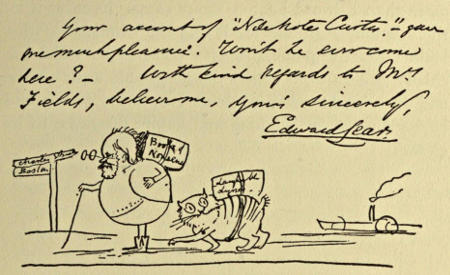 Your account of "Nile Notes Curtis" – gave
me much pleasure. Won't he ever come
here? – With kind regards to Mrs
Fields, believe me, Yours sincerely,
Edward Lear.
Charles St
Boston
Book of
Nonsense
Laughable
Lyrics